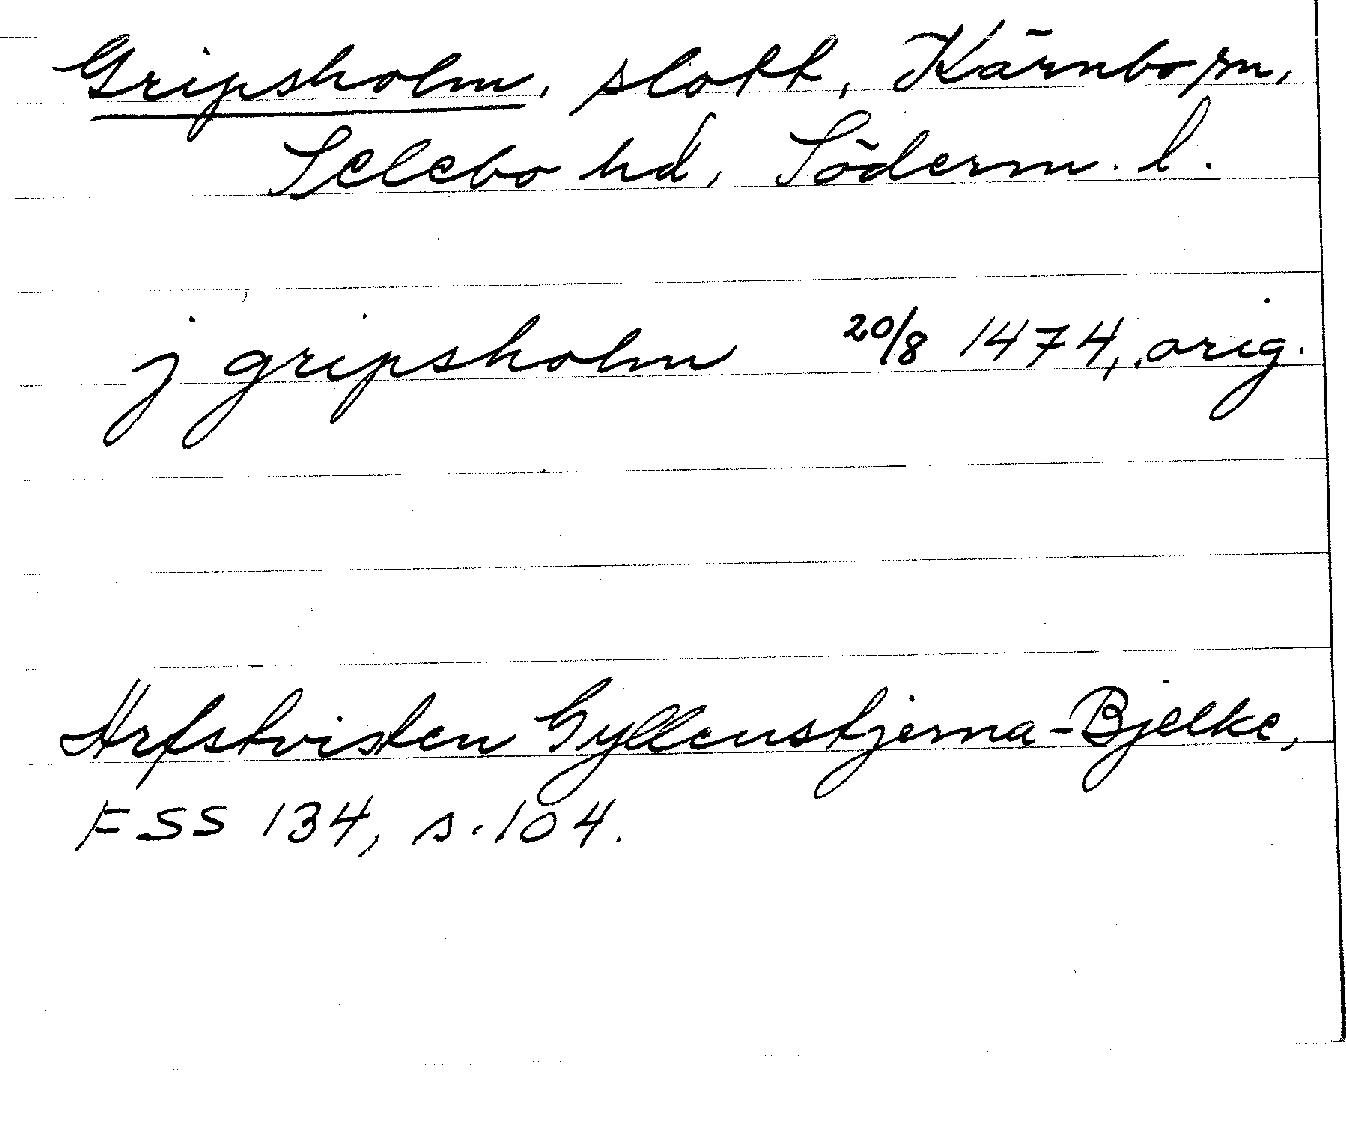 Gripsholm, slott, Kärnbo sn,
Selebo hd, Söderm. l.
j gripsholm 20/8 1474, orig.
Arfstvisten Gyllenstjerna-Bjelke,
FSS 134, s. 104.